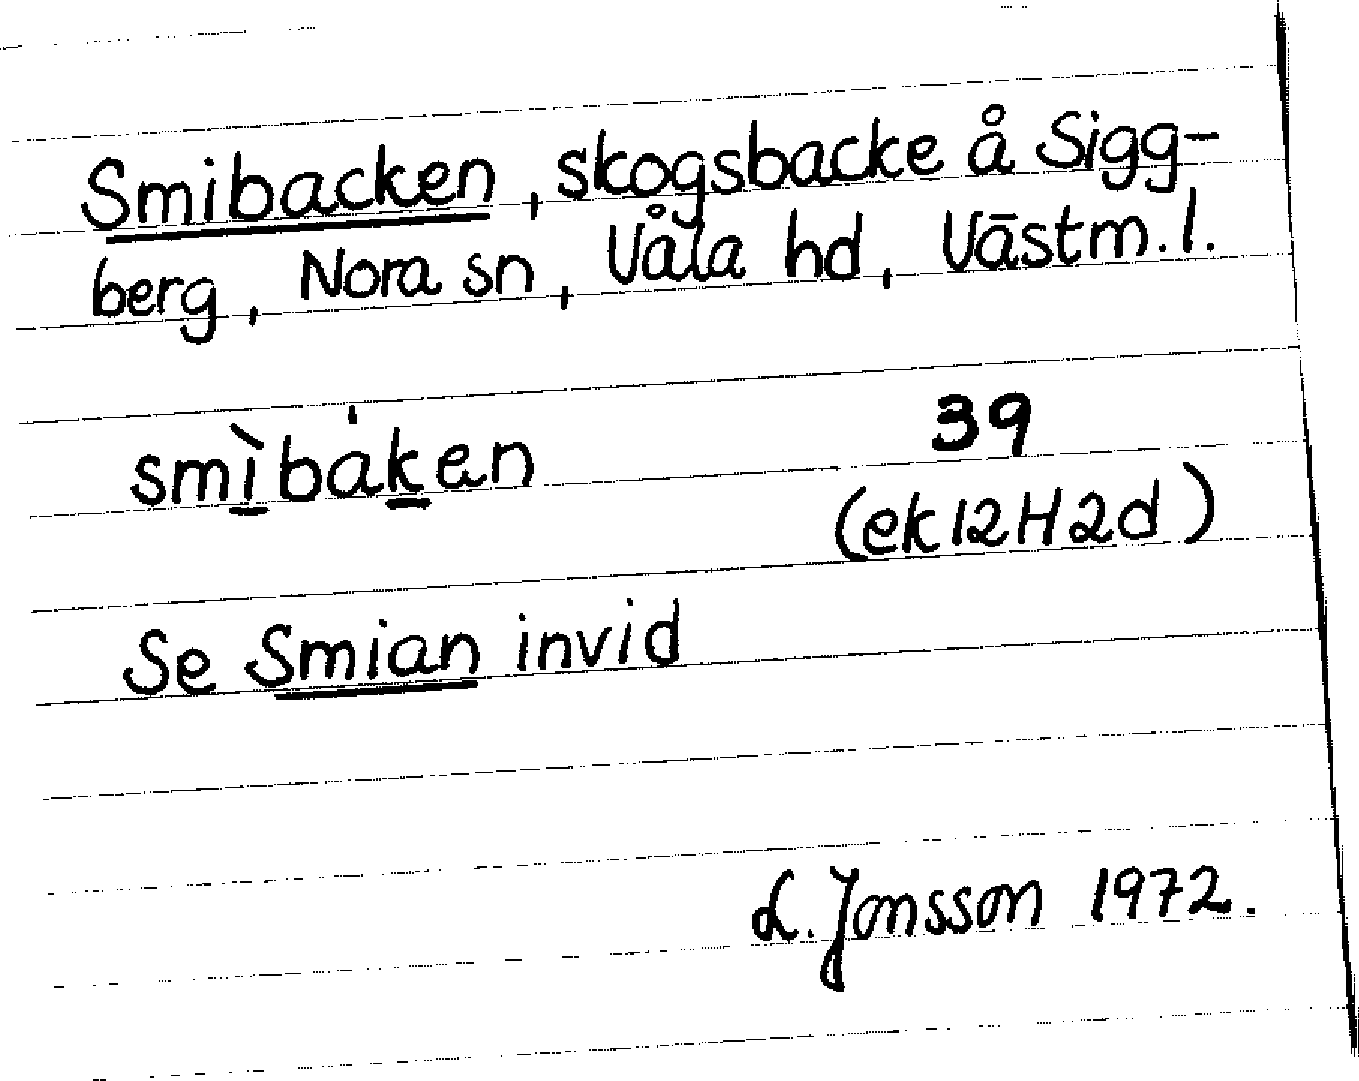 Smibacken, skogsbacke å Sigg-
berg, Nora sn, Våla hd, Västm. l.
smì̱báḵen 39
(ek 12H2d)
Se Smian invid
L. Jonsson 1972.